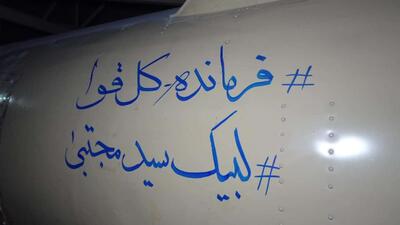 # فرمانده کل قوا
# لبیک سید مجتبی